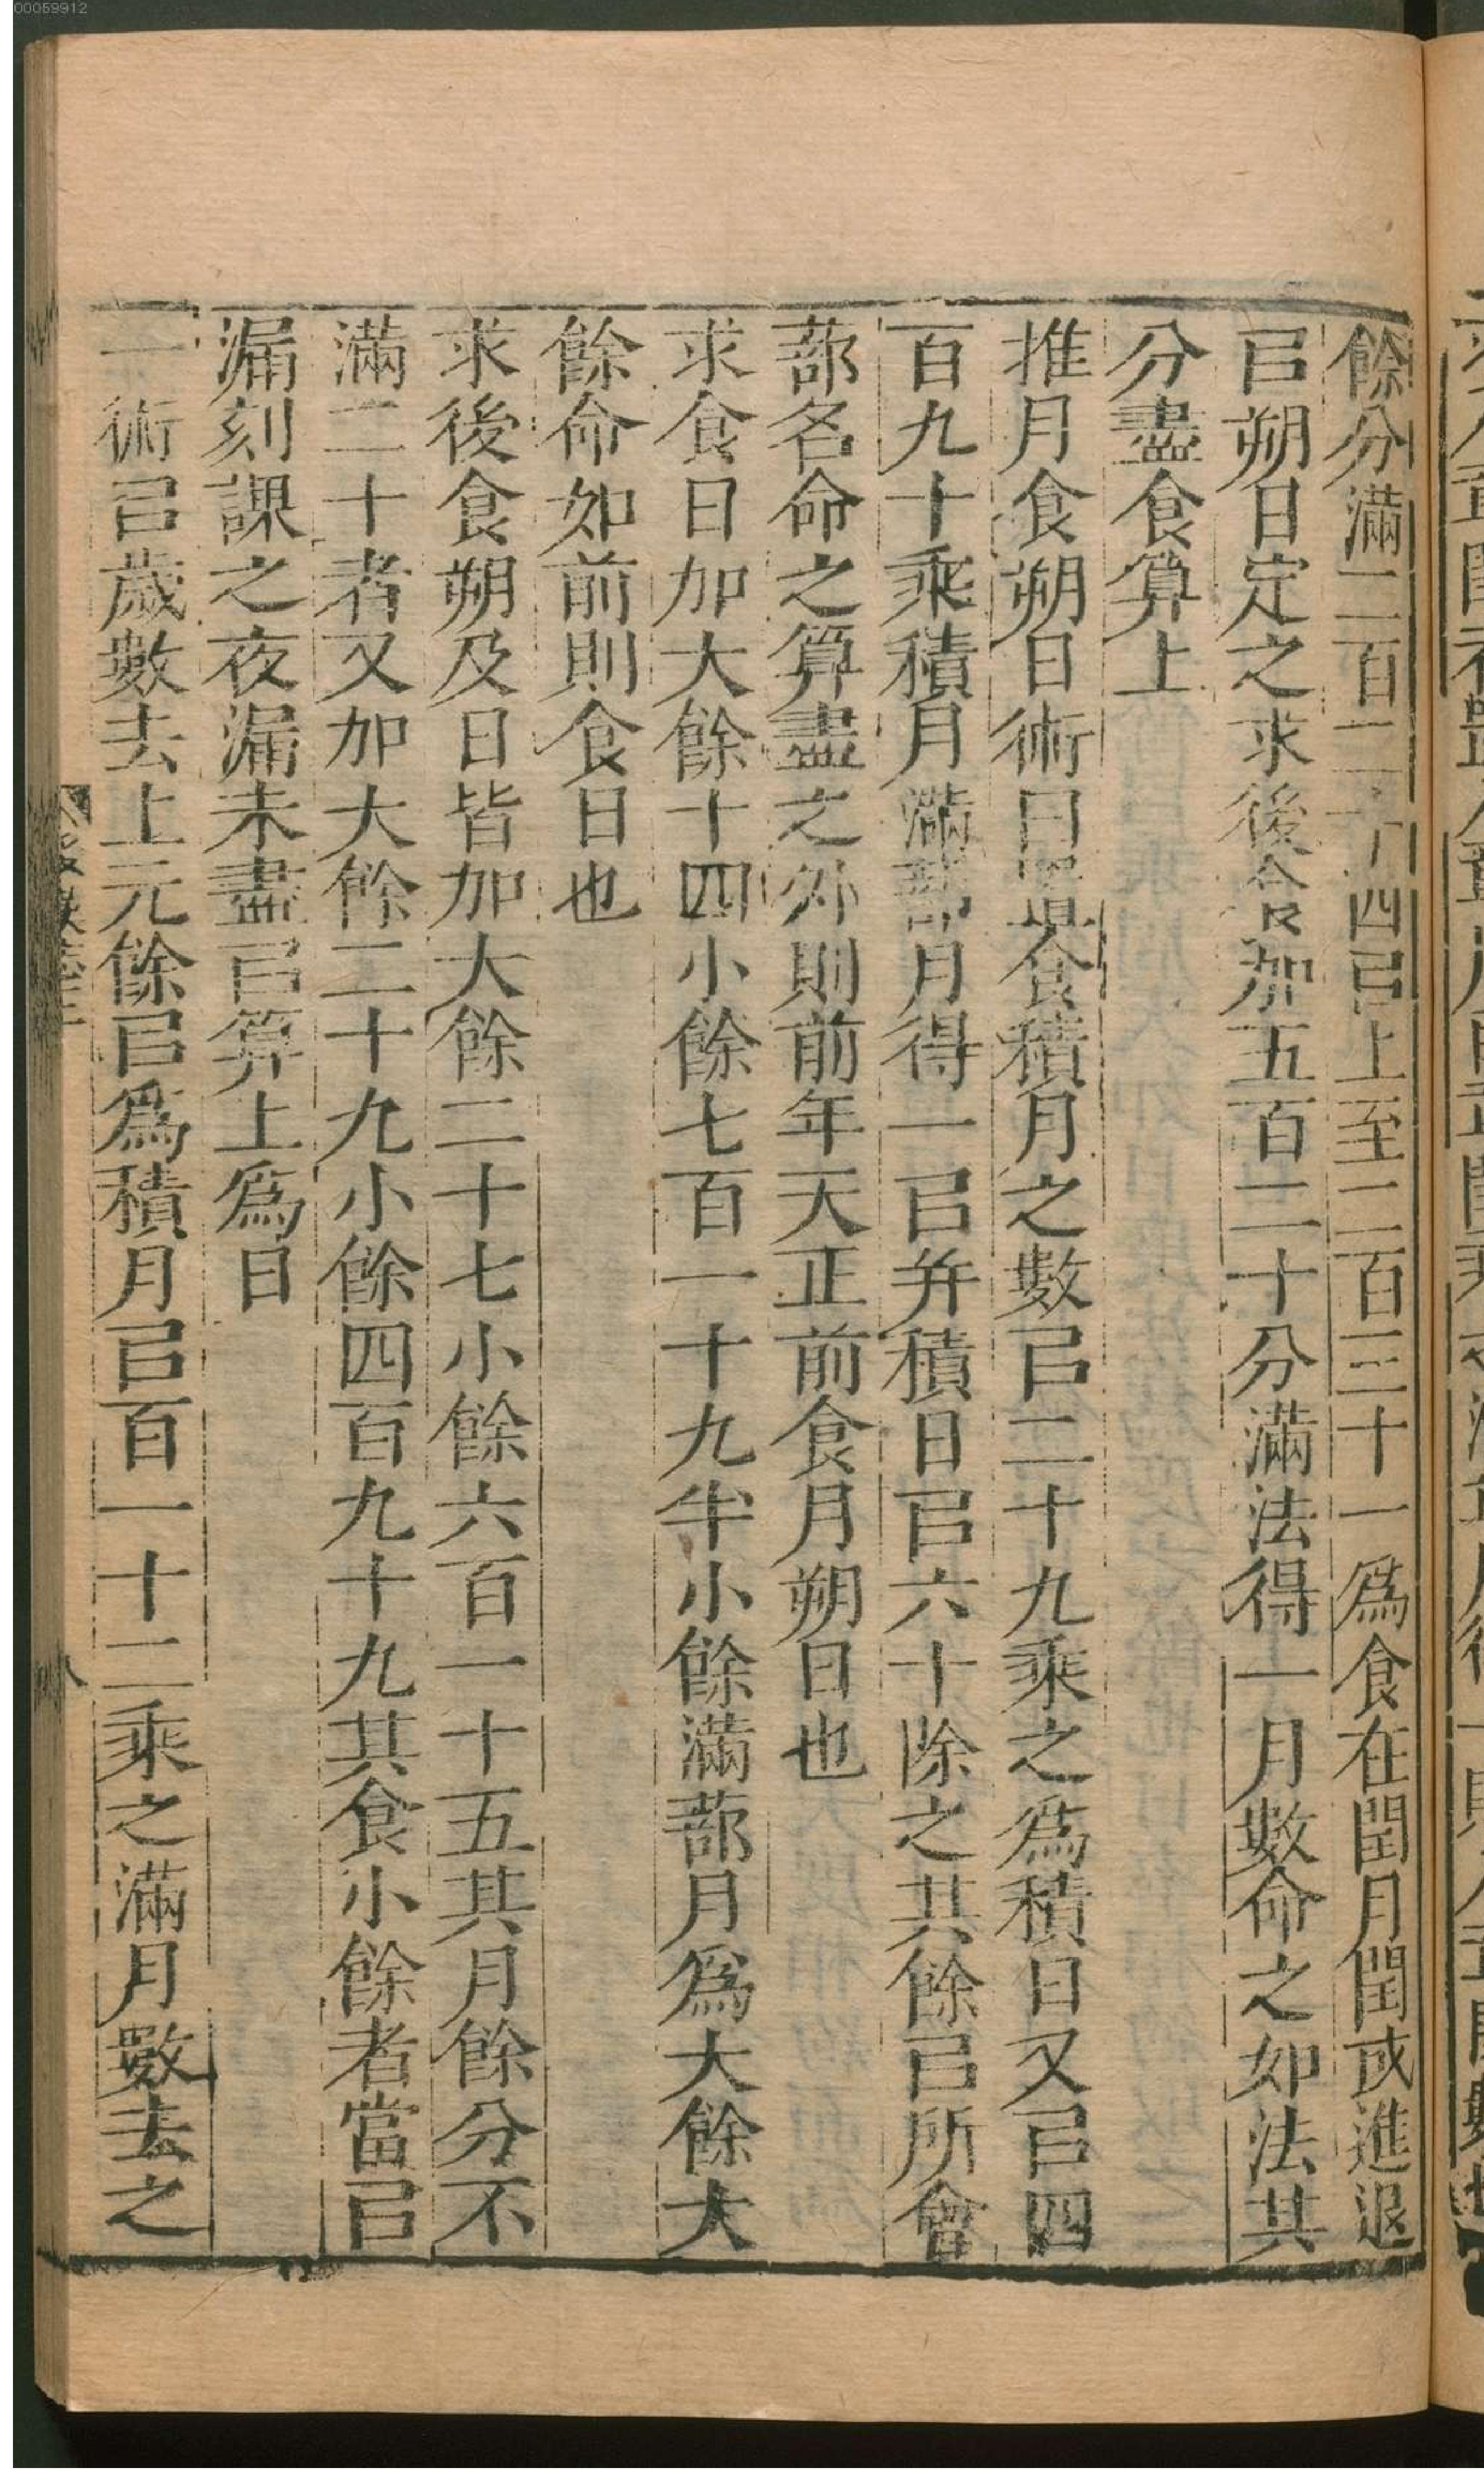 00059912
餘分滿二百二十四㠯上至二百三十一爲食在閏月閏或進退
㠯朔日定之求後食加五百二十分滿法得一月數命之如法其
分盡食算上
推月食朔日術曰置食積月之數㠯二十九乘之爲積日又㠯四
百九十乘積月滿蔀月得一㠯并積日㠯六十除之其餘㠯所會
蔀名命之算盡之外則前年天正前食月朔日也
求食日加大餘十四小餘七百一十九半小餘滿蔀月爲大餘大
餘命如前則食日也
求後食朔及日皆加大餘二十七小餘六百一十五其月餘分不
滿二十者又加大餘二十九小餘四百九十九其食小餘者當㠯
漏刻課之夜漏未盡㠯算上爲日
一術㠯歲數去上元餘㠯爲積月㠯百一十二乘之滿月數去之
八